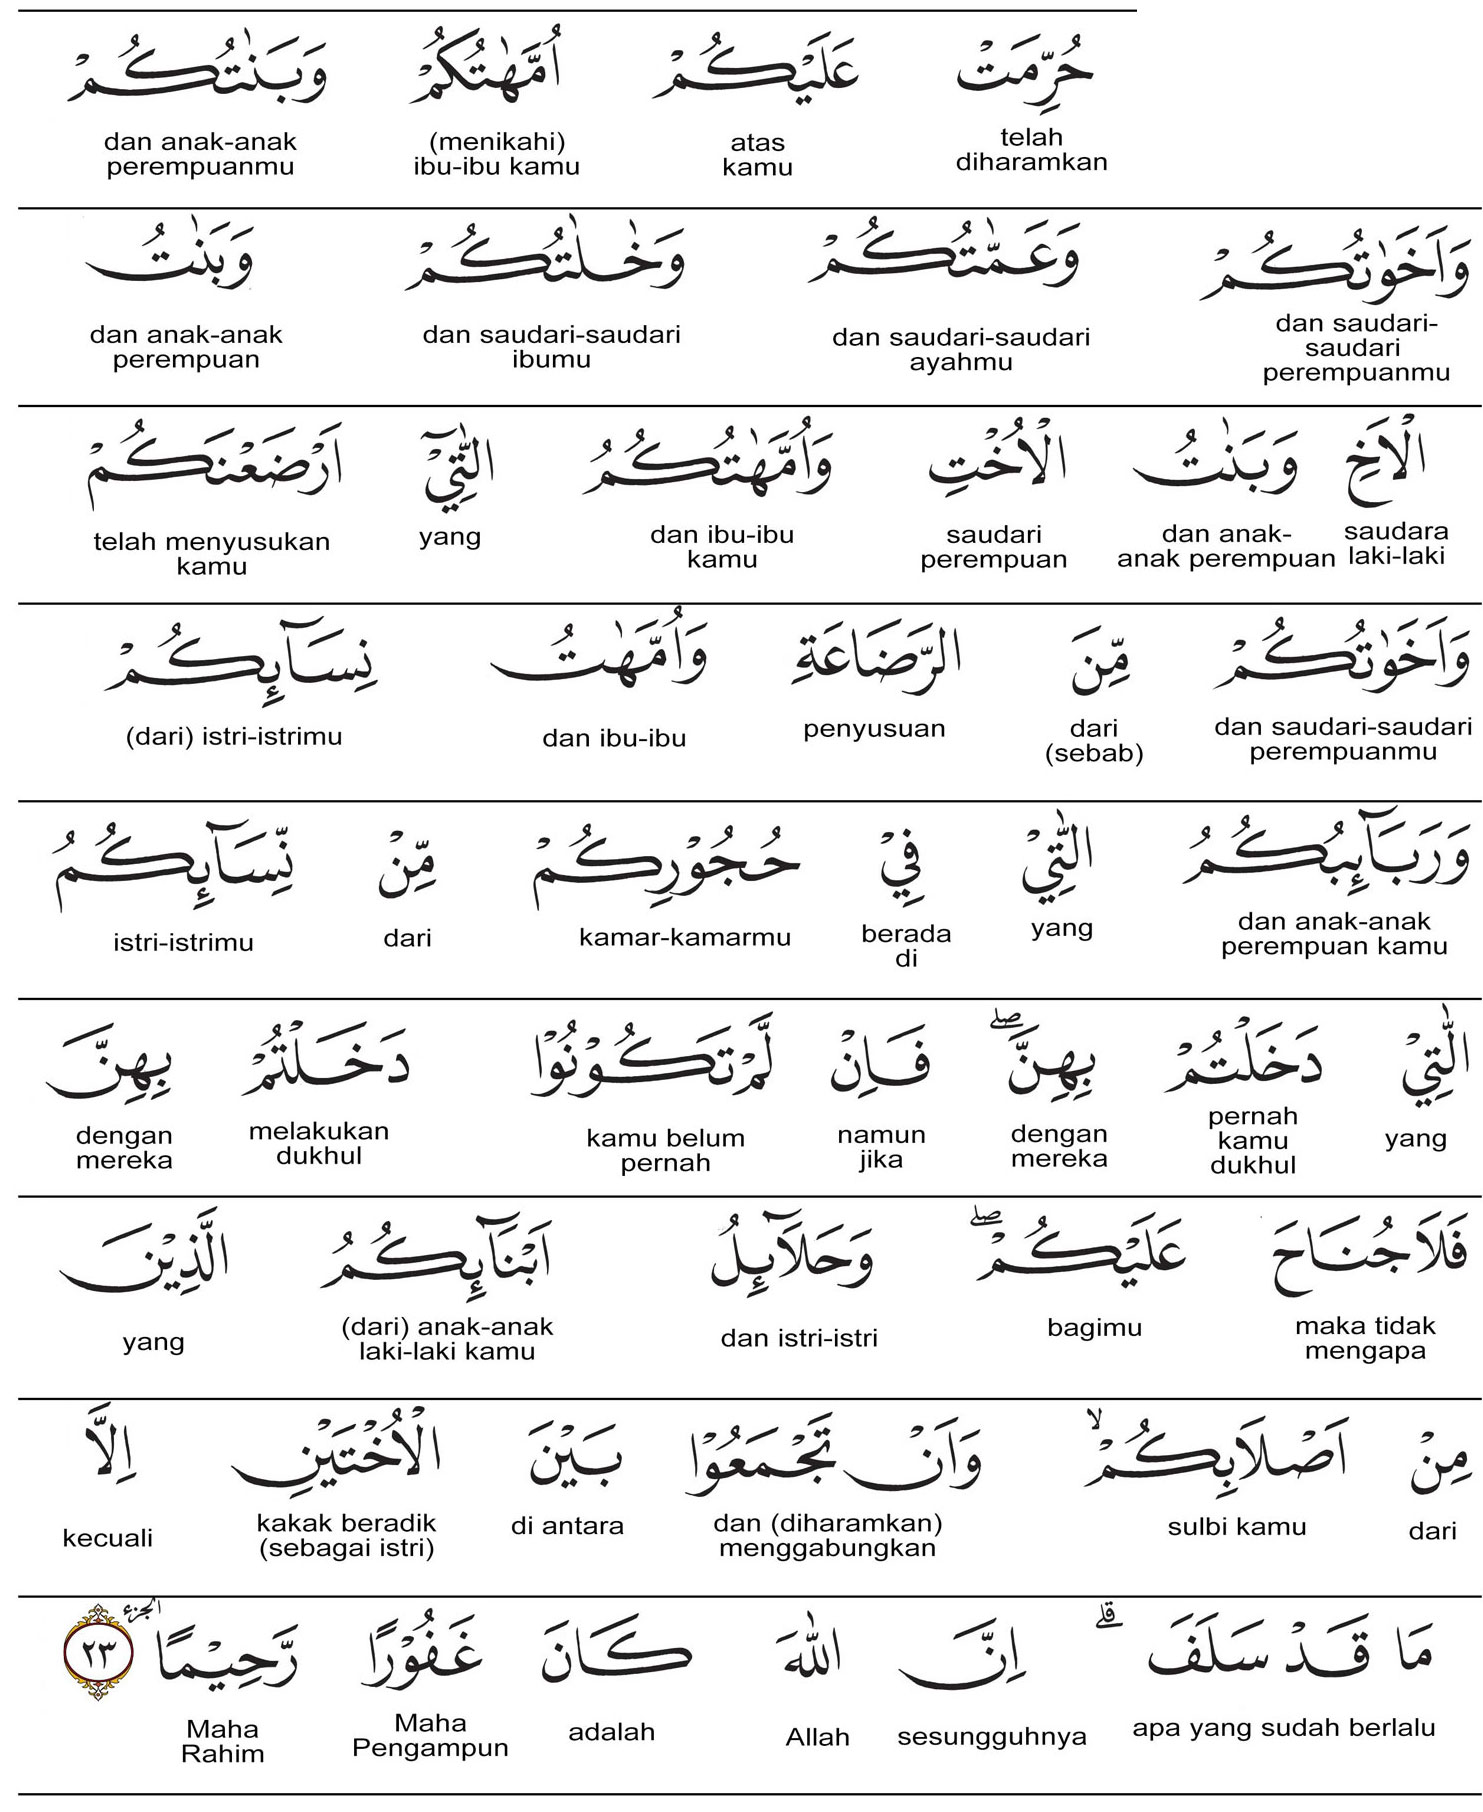 حُرِّمَتْ عَلَيْكُمْ اُمَّهٰتُكُمْ وَبَنٰتُكُمْ
telah diharamkan atas kamu (menikahi) ibu-ibu kamu dan anak-anak perempuanmu
وَاَخَوٰتُكُمْ وَعَمّٰتُكُمْ وَخٰلٰتُكُمْ وَبَنٰتُ
dan saudari-saudari perempuanmu dan saudari-saudari ayahmu dan saudari-saudari ibumu dan anak-anak perempuan
الْاَخِ وَبَنٰتُ الْاُخْتِ وَاُمَّهٰتُكُمُ الّٰتِيْٓ اَرْضَعْنَكُمْ
saudara laki-laki dan anak-anak perempuan saudari perempuan dan ibu-ibu kamu yang telah menyusukan kamu
وَاَخَوٰتُكُمْ مِّنَ الرَّضَاعَةِ وَاُمَّهٰتُ نِسَاۤىِٕكُمْ
dan saudari-saudari perempuanmu dari (sebab) penyusuan dan ibu-ibu (dari) istri-istrimu
وَرَبَاۤىِٕبُكُمُ الّٰتِيْ فِيْ حُجُوْرِكُمْ مِّنْ نِّسَاۤىِٕكُمُ
dan anak-anak perempuan kamu yang berada di kamar-kamarmu dari istri-istrimu
الّٰتِيْ دَخَلْتُمْ بِهِنَّۖ فَاِنْ لَّمْ تَكُوْنُوْا دَخَلْتُمْ بِهِنَّ
yang pernah kamu dukhul dengan mereka namun jika kamu belum pernah melakukan dukhul dengan mereka
فَلَا جُنَاحَ عَلَيْكُمْۖ وَحَلَاۤىِٕلُ اَبْنَاۤىِٕكُمُ الَّذِيْنَ
maka tidak mengapa bagimu dan istri-istri (dari) anak-anak laki-laki kamu yang
مِنْ اَصْلَابِكُمْۙ وَاَنْ تَجْمَعُوْا بَيْنَ الْاُخْتَيْنِ اِلَّا
dari sulbi kamu dan (diharamkan) menggabungkan di antara kakak beradik (sebagai istri) kecuali
مَا قَدْ سَلَفَۗ اِنَّ اللّٰهَ كَانَ غَفُوْرًا رَّحِيْمًا الجزء ٢٣
apa yang sudah berlalu sesungguhnya Allah adalah Maha Pengampun Maha Rahim